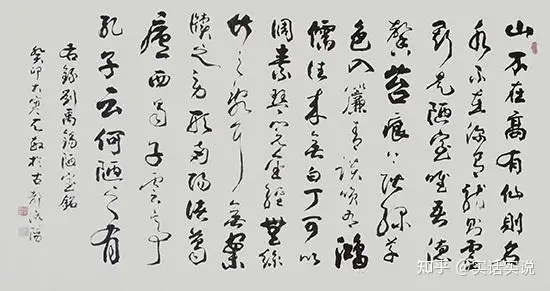 山不在高有仙則名
水不在深有龍則靈
斯是陋室唯吾德
馨苔痕上階綠草
色入簾青談笑有鴻
儒往來無白丁可以
調素琴閱金經無絲
竹之亂耳無案
牘之勞形南陽諸葛
廬西蜀子雲亭
孔子云何陋之有
右錄劉禹錫陋室銘
癸卯大寒於古都洛陽
知乎 @实话实说